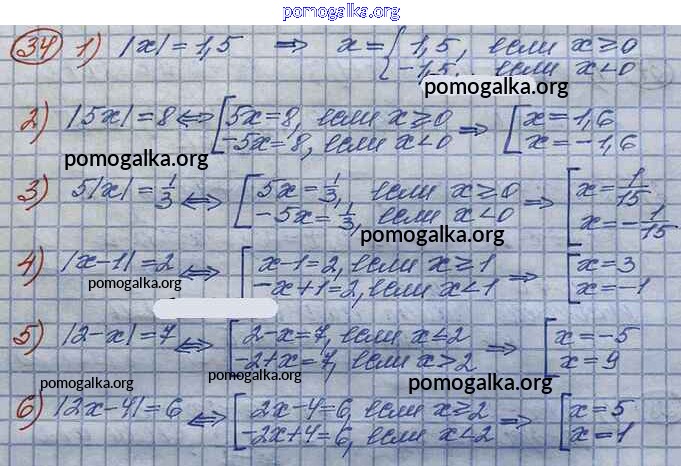 pomogalka.org
34 1) |x| = 1,5 ⇒ x = { 1,5, если x ≥ 0
-1,5, если x < 0
pomogalka.org
2) |5x| = 8 ⇔ [ 5x = 8, если x ≥ 0 ⇒ [ x = 1,6
-5x = 8, если x < 0 x = -1,6
pomogalka.org
3) 5|x| = 1/3 ⇔ [ 5x = 1/3, если x ≥ 0 ⇒ [ x = 1/15
-5x = 1/3, если x < 0 x = -1/15
pomogalka.org
4) |x-1| = 2 ⇔ [ x-1 = 2, если x ≥ 1 ⇒ [ x = 3
-x+1 = 2, если x < 1 x = -1
pomogalka.org
5) |2-x| = 7 ⇔ [ 2-x = 7, если x ≤ 2 ⇒ [ x = -5
-2+x = 7, если x > 2 x = 9
pomogalka.org pomogalka.org pomogalka.org
6) |2x-4| = 6 ⇔ [ 2x-4 = 6, если x ≥ 2 ⇒ [ x = 5
-2x+4 = 6, если x < 2 x = 1